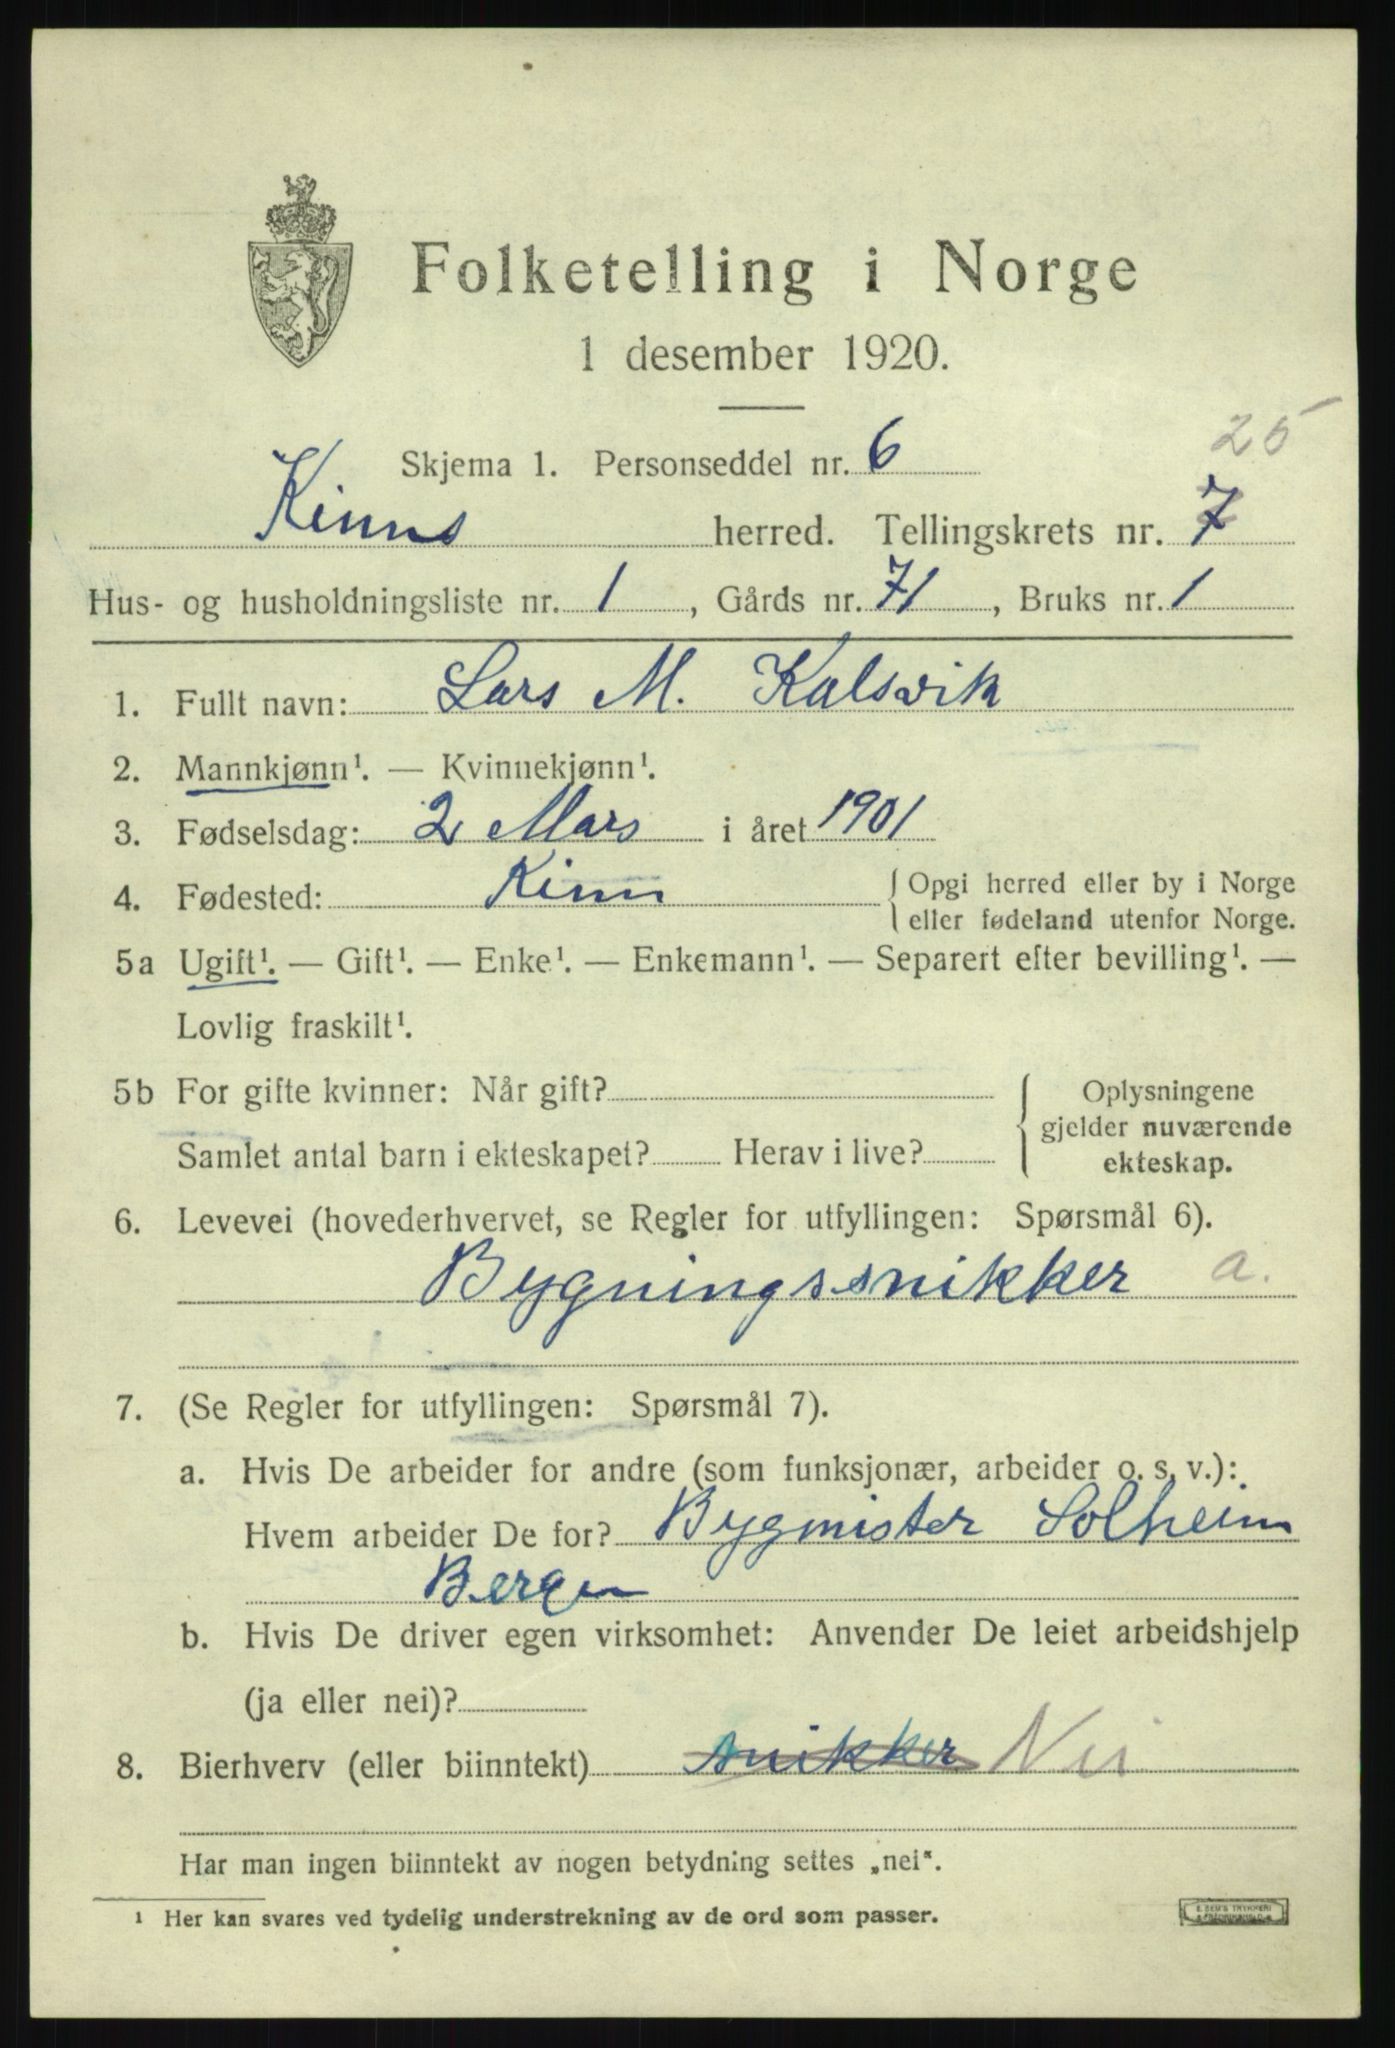 Folketelling i Norge
1 desember 1920.
25
Skjema 1. Personseddel nr. 6
Kinns herred. Tellingskrets nr. 7
Hus- og husholdningsliste nr. 1, Gårds nr. 71, Bruks nr. 1
1. Fullt navn: Lars M. Kalsvik
2. Mannkjønn¹. — Kvinnekjønn¹.
3. Fødselsdag: 2 Mars i året 1901
4. Fødested: Kinn { Opgi herred eller by i Norge
eller fødeland utenfor Norge.
5a Ugift¹. — Gift¹. — Enke¹. — Enkemann¹. — Separert efter bevilling¹. —
Lovlig fraskilt¹.
5b For gifte kvinner: Når gift? { Oplysningene
gjelder nuværende
Samlet antal barn i ekteskapet? Herav i live? ekteskap.
6. Levevei (hovederhvervet, se Regler for utfyllingen: Spørsmål 6).
Bygningssnikker a.
7. (Se Regler for utfyllingen: Spørsmål 7).
a. Hvis De arbeider for andre (som funksjonær, arbeider o. s. v.):
Hvem arbeider De for? Bygmister Solheim
Bergen
b. Hvis De driver egen virksomhet: Anvender De leiet arbeidshjelp
(ja eller nei)?
8. Bierhverv (eller biinntekt) snikker Nei
Har man ingen biinntekt av nogen betydning settes „nei“.
¹ Her kan svares ved tydelig understrekning av de ord som passer.